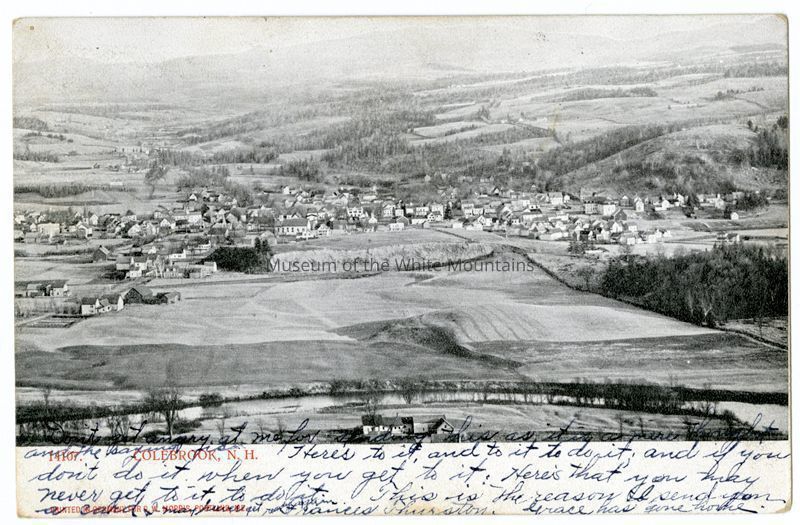 Museum of the White Mountains
Don't get angry at me for sending this as it is a mere thought
and he said
14107. COLEBROOK, N. H.
"Here's to it, and to it to do it; and if you
don't do it when you get to it; Here's that you may
never get to it to do it." This is the reason I send you
a card
PRINTED IN GERMANY FOR
Frances Thurston. Grace has gone home.